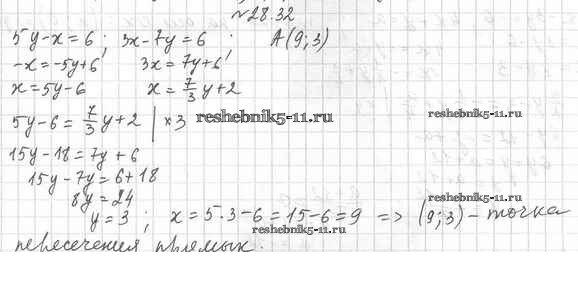 №28.32
5y-x=6; 3x-7y=6; A(9;3)
-x=-5y+6 3x=7y+6
x=5y-6 x=7/3 y+2
5y-6=7/3 y+2 | ×3 reshebnik5-11.ru reshebnik5-11.ru
15y-18=7y+6
15y-7y=6+18
8y=24 reshebnik5-11.ru
y=3; x=5·3-6=15-6=9 => (9;3)-точка
reshebnik5-11.ru
пересечения прямых.